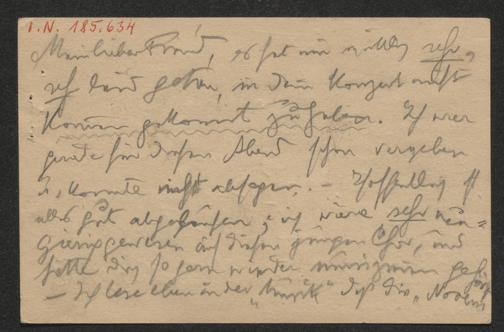 I.N. 185.634
Mein lieber Freund, es hat mir wirklich sehr,
sehr leid gethan, in Dein Konzert nicht
kommen gekonnt zu haben. Ich war
gerade für diesen Abend schon vergeben
u. konnte nicht absagen. – Hoffentlich ist
alles gut abgelaufen; ich wäre sehr neu=
gierig gewesen auf diesen jungen Chor, und
hätte Dich so gern wieder einmal gehört
– Ich lese eben in der "Musik" daß die "Nordische